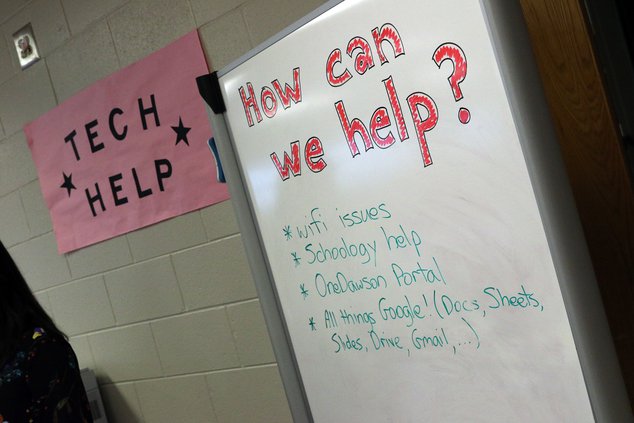 TECH
★ HELP ★
How can
we help?
* wifi issues
* Schoology help
* OneDawson Portal
* All things Google! (Docs, Sheets,
Slides, Drive, Gmail, ...)